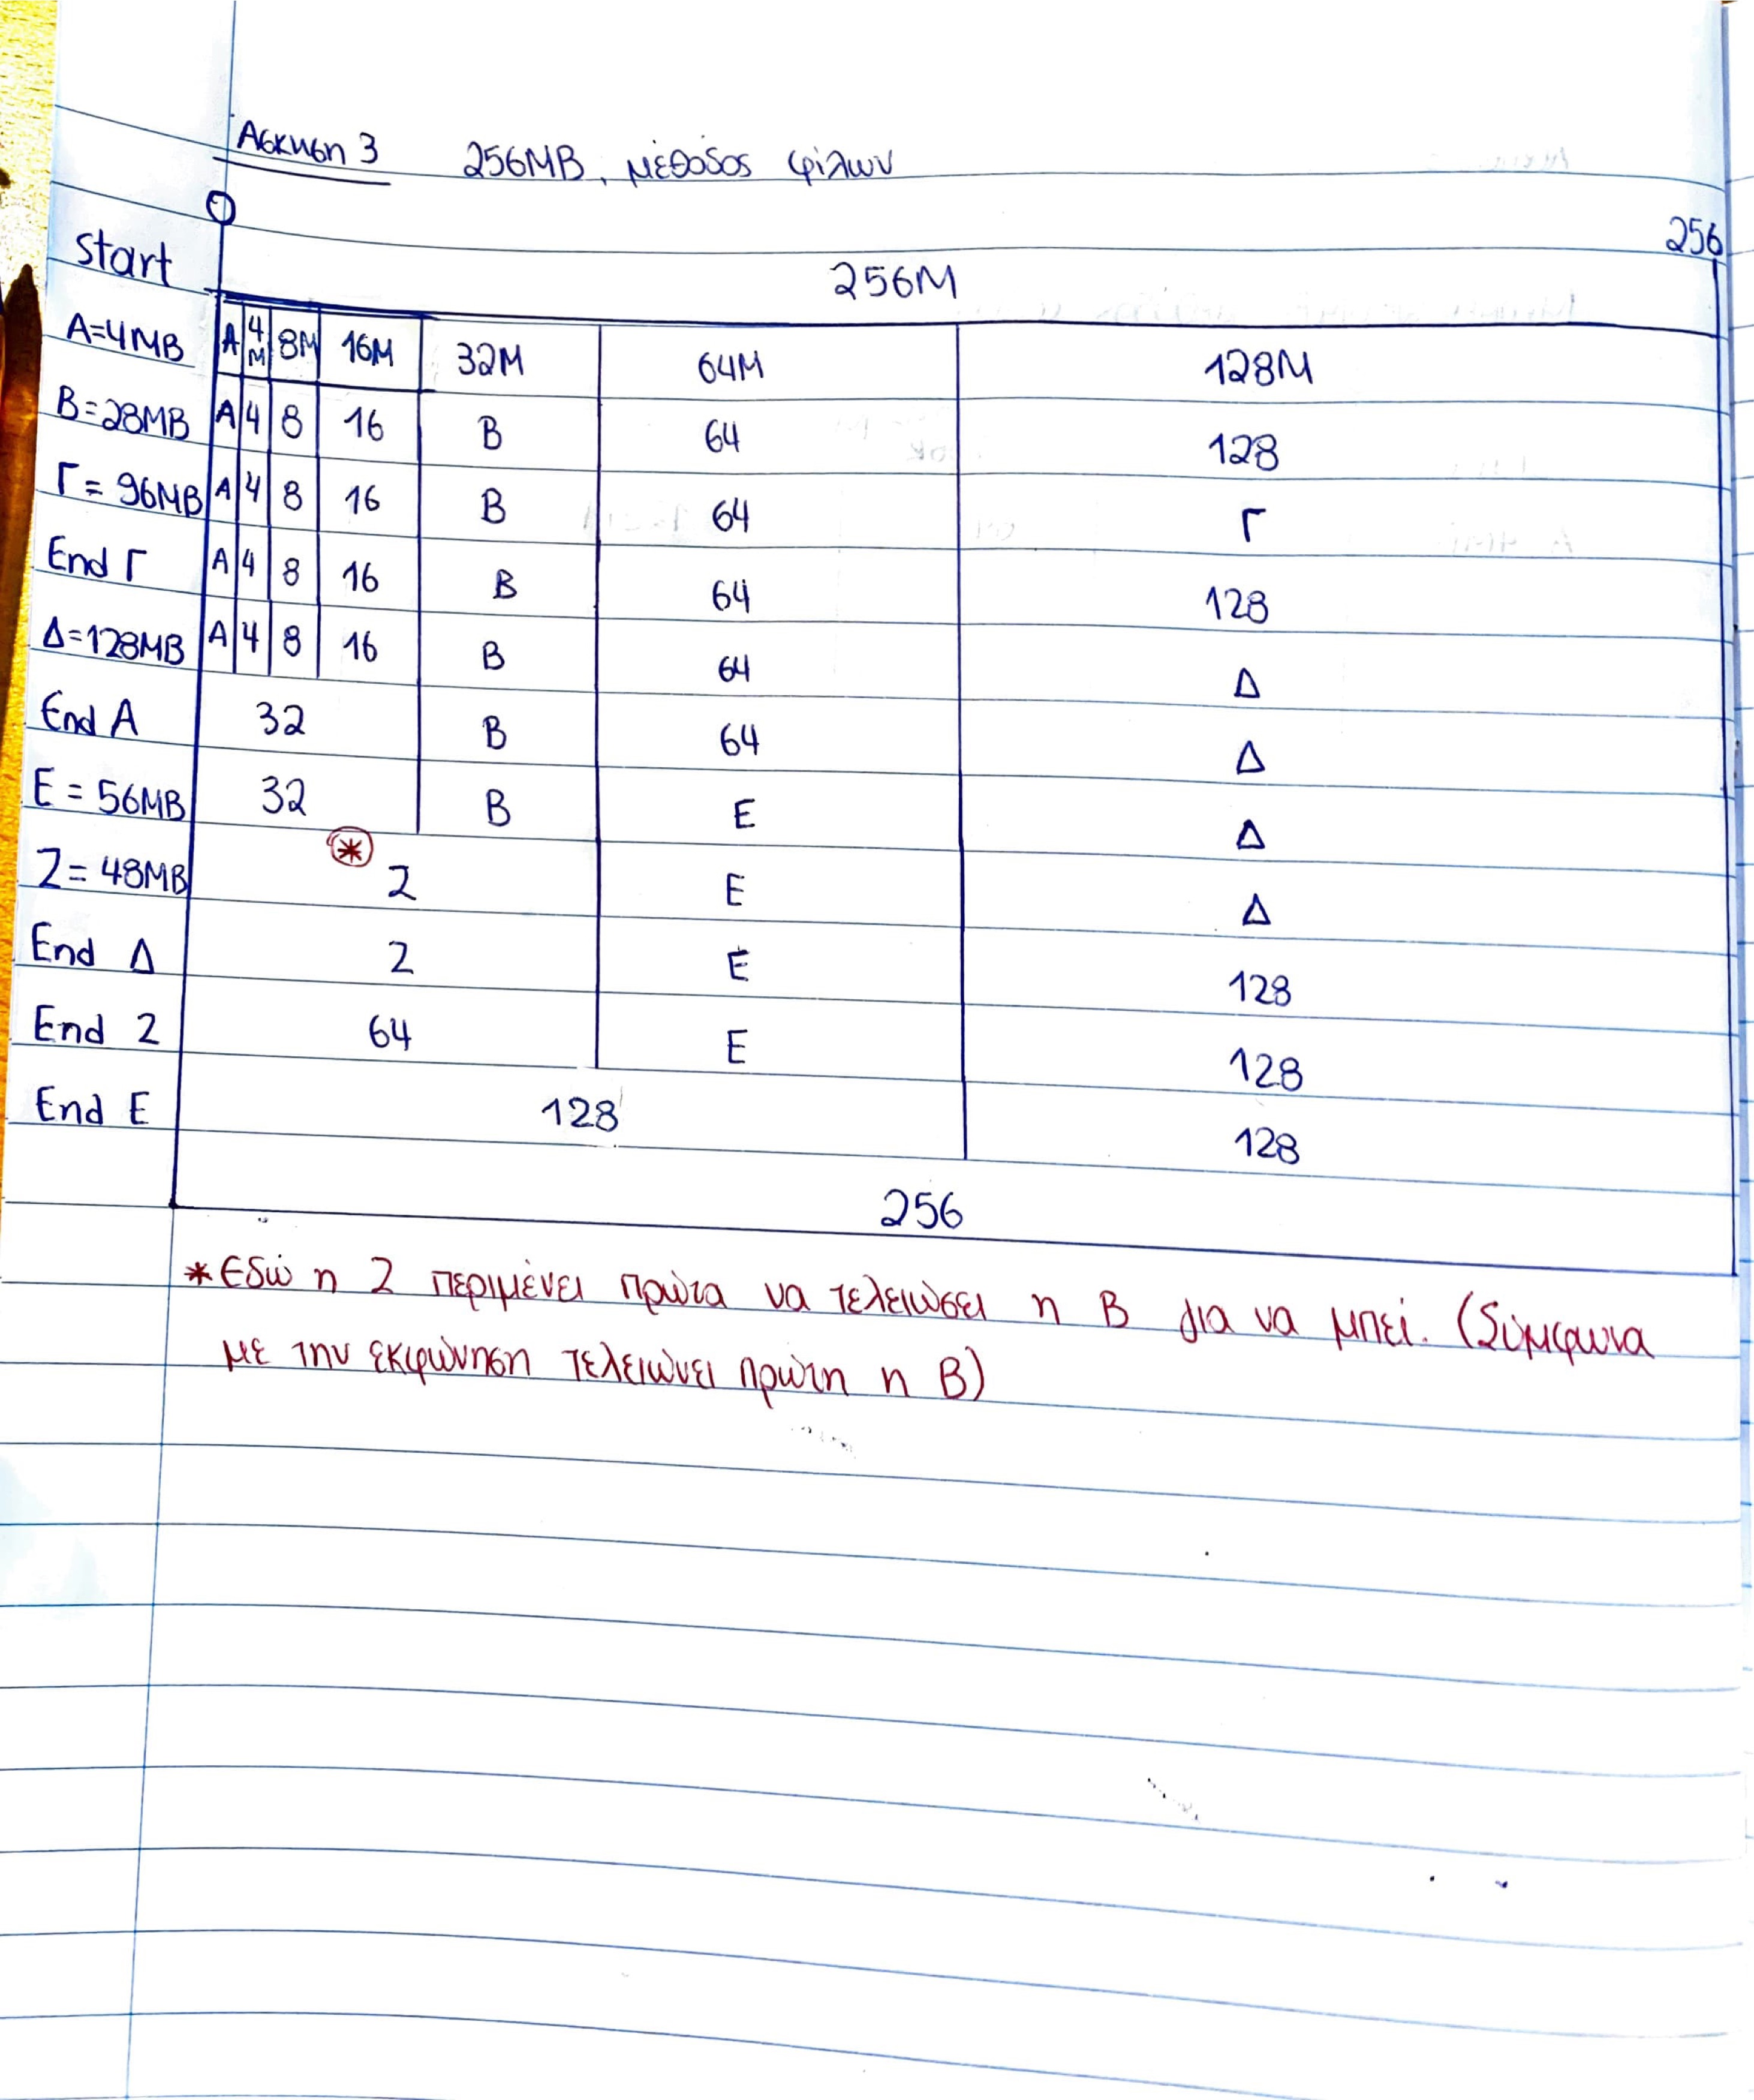 Άσκηση 3 256MB, μέθοδος φίλων
0 256
Start 256M
A=4MB A 4M 8M 16M 32M 64M 128M
B=28MB A 4 8 16 B 64 128
Γ= 96MB A 4 8 16 B 64 Γ
End Γ A 4 8 16 B 64 128
Δ=128MB A 4 8 16 B 64 Δ
End A 32 B 64 Δ
E = 56MB 32 B E Δ
Ζ= 48MB * Ζ E Δ
End Δ Ζ E 128
End Ζ 64 E 128
End E 128 128
256
*Εδώ η Ζ περιμένει πρώτα να τελειώσει η Β για να μπεί. (Σύμφωνα
με την εκφώνηση τελειώνει πρώτη η Β)